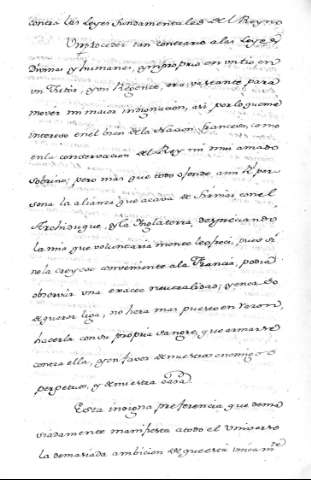 contra las Leyes fundamentales del Reyno
Un proceder tan contrario a las Leyes
Divinas y humanas, y impropio en un tio, en
un Tutor, y un Regente, era vastante para
mover mi maior indignacion, asi por lo que me
intereso en el bien de la Nacion francesa, como
en la conservacion del Rey mi mui amado
sobrino; pero mas que todo ofende a mi R. per
sona la alianza que acava de firmar con el
Archiduque, y la Inglaterra, despreciando
la mia que voluntariamente le ofreci, pues si
no la creyese conveniente a la Francia, podia
observar una exacta neutralidad; y en caso
de querer liga, no era mas puesto en razon,
hacerla con su propria sangre, que armarse
contra ella, y en favor de nuestros enemigos
perpetuos, y de nuestra casa.
Esta indigna preferencia que dema
siadamente manifiesta a todo el Universo
la demasiada ambicion de querer